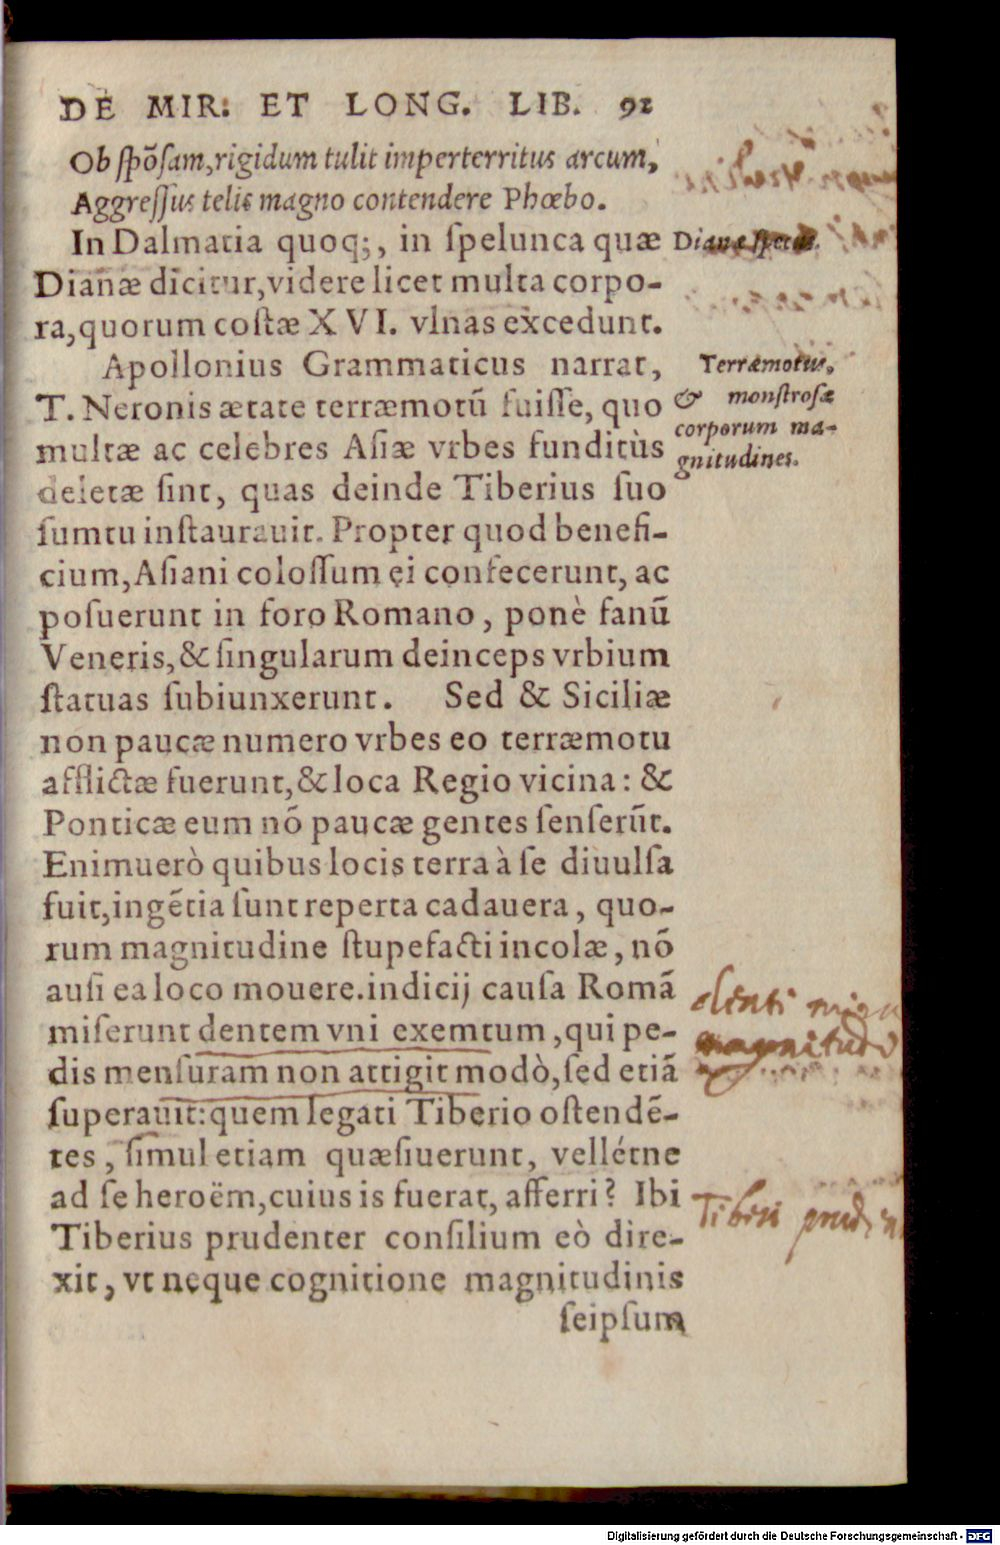 DE MIR. ET LONG. LIB. 91
Ob spõsam,rigidum tulit imperterritus arcum,
Aggressus telis magno contendere Phœbo.
In Dalmatia quoq;, in spelunca quæ
Dianæ specus.
Dianæ dicitur,videre licet multa corpo-
ra,quorum costæ XVI. vlnas excedunt.
Apollonius Grammaticus narrat,
T. Neronis ætate terræmotũ fuisse, quo
multæ ac celebres Asiæ vrbes funditùs
deletæ sint, quas deinde Tiberius suo
Terræmotus,
& monstrosæ
corporum ma-
gnitudines.
sumtu instaurauit. Propter quod benefi-
cium,Asiani colossum ei confecerunt, ac
posuerunt in foro Romano, ponè fanũ
Veneris,& singularum deinceps vrbium
statuas subiunxerunt. Sed & Siciliæ
non paucæ numero vrbes eo terræmotu
afflictæ fuerunt,& loca Regio vicina: &
Ponticæ eum nõ paucæ gentes senserũt.
Enimuerò quibus locis terra à se diuulsa
fuit,ingẽtia sunt reperta cadauera, quo-
rum magnitudine stupefacti incolæ, nõ
ausi ea loco mouere.indicij causa Romã
miserunt dentem vni exemtum,qui pe-
dis mensuram non attigit modò,sed etiã
superauit:quem legati Tiberio ostendẽ-
tes, simul etiam quæsiuerunt, velletne
ad se heroëm,cuius is fuerat, afferri? Ibi
Tiberius prudenter consilium eò dire-
xit, vt neque cognitione magnitudinis
seipsum
magnitudo
Tiberii
Digitalisierung gefördert durch die Deutsche Forschungsgemeinschaft - DFG